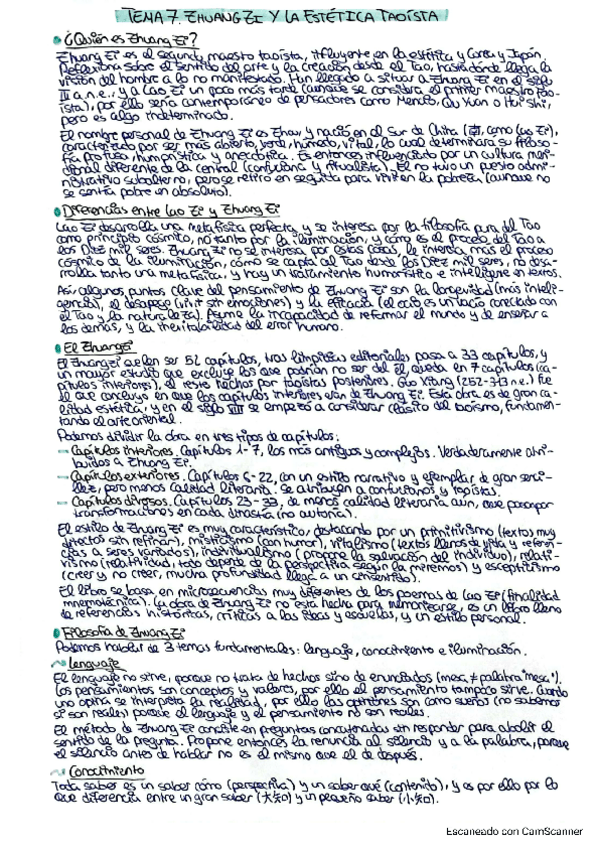 TEMA 7. ZHUANG ZI Y LA ESTÉTICA TAOÍSTA
¿Quién es Zhuang Zi?
Zhuang Zi es el segundo maestro taoísta, influyente en la estética y Corea y Japón.
Reflexiona sobre el sentido del arte y la creación desde el Tao, hasta dónde llega la
visión del hombre a lo no manifestado. Han llegado a situar a Zhuang Zi en el siglo
III a.n.e., y a Lao Zi un poco más tarde (aunque se considera el primer maestro tao-
ísta), por ello sería contemporáneo de pensadores como Mencio, Qu Yuan o Hui Shi,
pero es algo indeterminado.
El nombre personal de Zhuang Zi es Zhou y nació en el Sur de China (南, como Lao Zi),
caracterizado por ser más abierto, verde, húmedo, vital, lo cual determinara su filoso-
fía profusa, humorística y anecdótica. Es entonces influenciado por un cultura meri-
dional diferente de la central (confuciana y ritualista). El no tuvo un puesto admi-
nistrativo subalterno, pero se retiró en seguida para vivir en la pobreza (aunque no
se sentía pobre en absoluto).
Diferencias entre Lao Zi y Zhuang Zi
Lao Zi desarrolla una metafísica perfecta y se interesa por la filosofía pura del Tao
como principio cósmico, no tanto por la iluminación, y cómo es el proceso del Tao a
los Diez mil seres. Zhuang Zi no se interesa por estas cosas, le interesa más el proceso
cósmico de la iluminación, cómo se capta al Tao desde los Diez mil seres, no desa-
rrolla tanto una metafísica, y hay un tratamiento humorístico e inteligente en textos.
Así, algunos puntos clave del pensamiento de Zhuang Zi son la longevidad (más inteli-
gencia), el desapego (vivir sin emociones) y la eficacia (el ocio es un vacío conectado con
el Tao y la naturaleza). Asume la incapacidad de reformar el mundo y de enseñar a
los demás, y la inevitabilidad del error humano.
El Zhuangzi
El Zhuangzi suelen ser 52 capítulos, tras limpiezas editoriales pasa a 33 capítulos, y
un mayor estudio que excluye los que podrían no ser del él, queda en 7 capítulos (ca-
pítulos interiores), el resto hechos por taoístas posteriores. Guo Xiang (252-313 n.e.) fue
el que concluyó en que los capítulos interiores eran de Zhuang Zi. Esta obra es de gran ca-
lidad estética, y en el siglo VIII se empezó a considerar clásico del taoísmo, fundamen-
tando el arte oriental.
Podemos dividir la obra en tres tipos de capítulos:
- Capítulos interiores. Capítulos 1-7, los más antiguos y complejos. Verdaderamente atri-
buidos a Zhuang Zi.
- Capítulos exteriores. Capítulos 6-22, con un estilo narrativo y ejemplar de gran senci-
llez, pero menos calidad literaria. Se atribuyen a confucianos y taoístas.
- Capítulos diversos. Capítulos 23-33, de menos calidad literaria aún, que
transformaciones en cada dinastía (no autoría).
El estilo de Zhuang Zi es muy característico, destacando por un primitivismo (textos muy
directos sin refinar), misticismo (con humor), vitalismo (textos llenos de vida y referen-
cias a seres variados), individualismo (propone la salvación del individuo), relati-
vismo (relatividad, todo depende de la perspectiva según la miremos) y escepticismo
(creer y no creer, mucha profundidad llega a un sinsentido).
El libro se basa en microsecuencias muy diferentes de los poemas de Lao Zi (finalidad
mnemotécnica). La obra de Zhuang Zi no está hecha para memorizarse, es un libro lleno
de referencias históricas, críticas a las ideas y escuelas, y un estilo personal.
Filosofía de Zhuang Zi
Podemos hablar de 3 temas fundamentales: lenguaje, conocimiento e iluminación.
Lenguaje
El lenguaje no sirve, porque no trata de hechos sino de enunciados (mesa ≠ palabra "mesa").
Los pensamientos son conceptos y valores, por ello el pensamiento tampoco sirve. Cuando
uno opina se interpreta la realidad, por ello las opiniones son como sueños (no sabemos
si son reales) porque el lenguaje y el pensamiento no son reales.
El método de Zhuang Zi consiste en preguntas concatenadas sin responder para abolir el
sentido de la pregunta. Propone entonces la renuncia al silencio y a la palabra, porque
el silencio antes de hablar no es el mismo que el de después.
Conocimiento
Todo saber es un saber cómo (perspectiva) y un saber qué (contenido), y es por ello por lo
que diferencia entre un gran saber (大知) y un pequeño saber (小知).
Escaneado con CamScanner